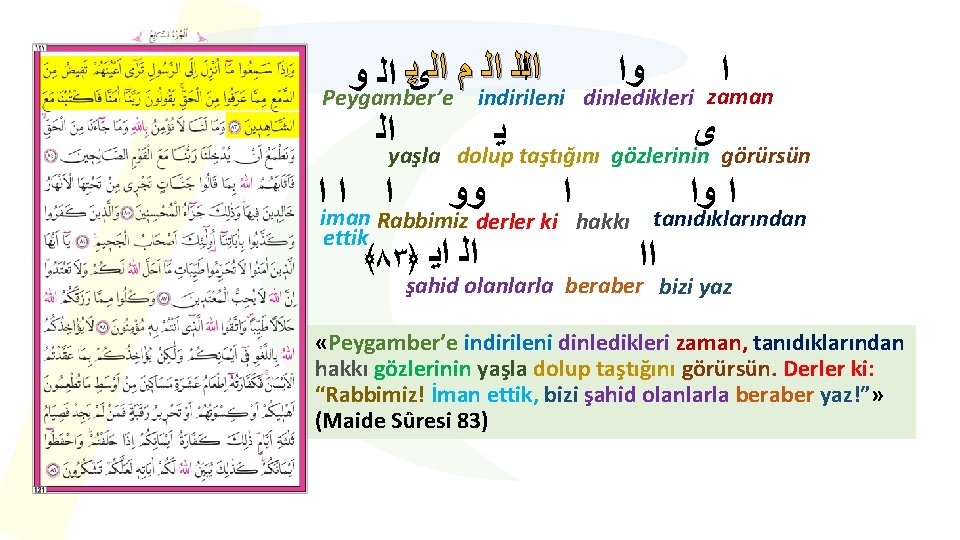 اَلْجُزْءُ السَّابِعُ
١٢١
وَاِذَا سَمِعُوا مَٓا اُنْزِلَ اِلَى الرَّسُولِ تَرٰٓى اَعْيُنَهُمْ تَفِيضُ مِنَ
الدَّمْعِ مِمَّا عَرَفُوا مِنَ الْحَقِّ يَقُولُونَ رَبَّنَٓا اٰمَنَّا فَاكْتُبْنَا مَعَ
الشَّاهِدِينَ ﴿٨٣﴾ وَمَا لَنَا لَا نُؤْمِنُ بِاللّٰهِ وَمَا جَٓاءَنَا مِنَ الْحَقِّ
وَنَطْمَعُ اَنْ يُدْخِلَنَا رَبُّنَا مَعَ الْقَوْمِ الصَّالِحِينَ ﴿٨٤﴾
فَاَثَابَهُمُ اللّٰهُ بِمَا قَالُوا جَنَّاتٍ تَجْرِي مِنْ تَحْتِهَا الْاَنْهَارُ
خَالِدِينَ فِيهَا وَذٰلِكَ جَزَٓاءُ الْمُحْسِنِينَ ﴿٨٥﴾ وَالَّذِينَ كَفَرُوا
وَكَذَّبُوا بِاٰيَاتِنَٓا اُو۬لٰٓئِكَ اَصْحَابُ الْجَحِيمِ ﴿٨٦﴾ يَٓا اَيُّهَا
الَّذِينَ اٰمَنُوا لَا تُحَرِّمُوا طَيِّبَاتِ مَٓا اَحَلَّ اللّٰهُ لَكُمْ وَلَا تَعْتَدُوا
اِنَّ اللّٰهَ لَا يُحِبُّ الْمُعْتَدِينَ ﴿٨٧﴾ وَكُلُوا مِمَّا رَزَقَكُمُ اللّٰهُ
حَلَالًا طَيِّبًا وَاتَّقُوا اللّٰهَ الَّذِٓي اَنْتُمْ بِهِ مُؤْمِنُونَ ﴿٨٨﴾ لَا يُؤَاخِذُكُمُ
اللّٰهُ بِاللَّغْوِ فِٓي اَيْمَانِكُمْ وَلٰكِنْ يُؤَاخِذُكُمْ بِمَا عَقَّدْتُمُ
الْاَيْمَانَ فَكَفَّارَتُهُٓ اِطْعَامُ عَشَرَةِ مَسَاكِينَ مِنْ اَوْسَطِ مَا تُطْعِمُونَ
اَهْلِيكُمْ اَوْ كِسْوَتُهُمْ اَوْ تَحْرِيرُ رَقَبَةٍ فَمَنْ لَمْ يَجِدْ فَصِيَامُ
ثَلٰثَةِ اَيَّامٍ ذٰلِكَ كَفَّارَةُ اَيْمَانِكُمْ اِذَا حَلَفْتُمْ وَاحْفَظُٓوا
اَيْمَانَكُمْ كَذٰلِكَ يُبَيِّنُ اللّٰهُ لَكُمْ اٰيَاتِهِ لَعَلَّكُمْ تَشْكُرُونَ ﴿٨٩﴾
121
ا وا
Peygamber’e indirileni dinledikleri zaman
ى ﻳ الـ
yaşla dolup taştığını gözlerinin görürsün
ا وا ا وو ا ا ا
iman Rabbimiz derler ki hakkı tanıdıklarından
ettik
اا الـ ايـ ﴿٨٣﴾
şahid olanlarla beraber bizi yaz
«Peygamber’e indirileni dinledikleri zaman, tanıdıklarından
hakkı gözlerinin yaşla dolup taştığını görürsün. Derler ki:
“Rabbimiz! İman ettik, bizi şahid olanlarla beraber yaz!”»
(Maide Sûresi 83)